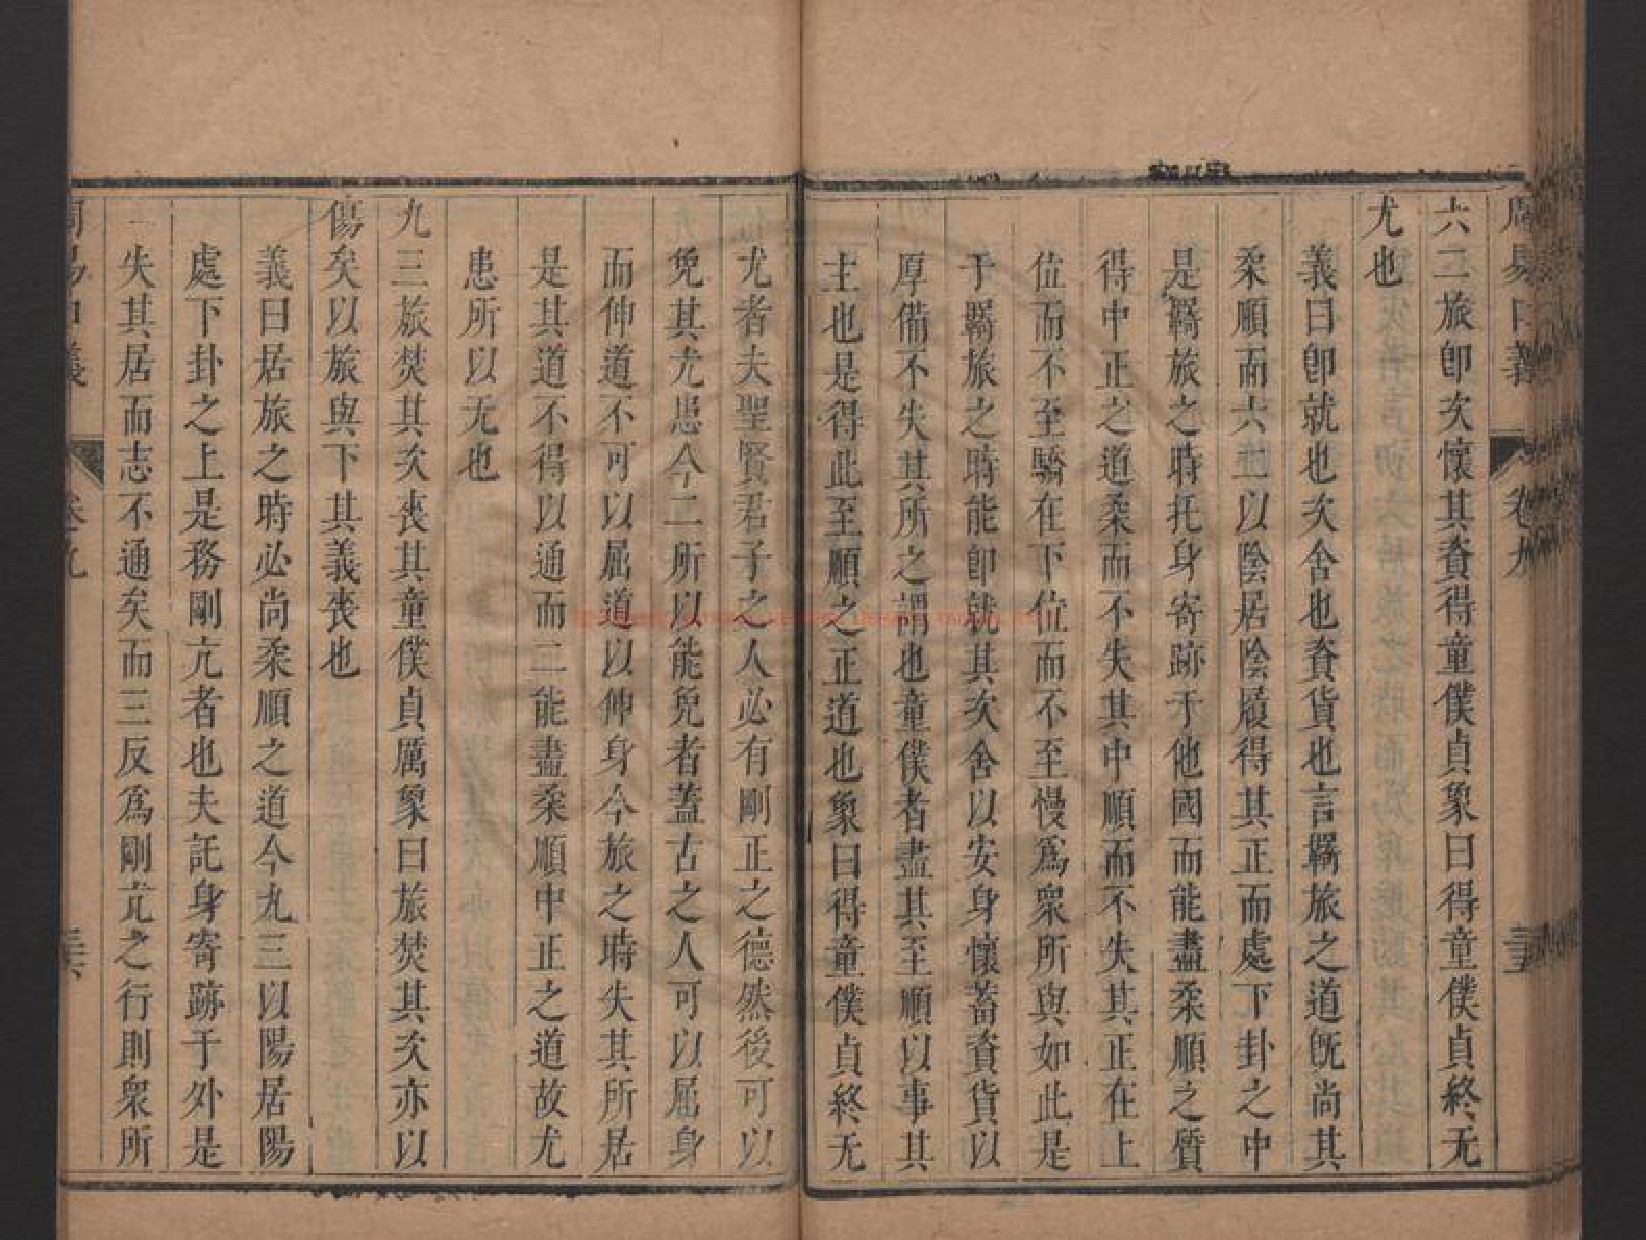 周易口義 卷九
六二旅卽次懷其資得童僕貞象曰得童僕貞終无
尤也
義曰卽就也次舍也資貨也言羇旅之道旣尚其
柔順而六二以陰居陰履得其正而處下卦之中
是羇旅之時托身寄跡于他國而能盡柔順之質
得中正之道柔而不失其中順而不失其正在上
位而不至驕在下位而不至慢爲衆所與如此是
于羇旅之時能卽就其次舍以安身懷蓄資貨以
厚備不失其所之謂也童僕者盡其至順以事其
主也是得此至順之正道也象曰得童僕貞終无
尤者夫聖賢君子之人必有剛正之德然後可以
免其尤患今二所以能免者蓋古之人可以屈身
而伸道不可以屈道以伸身今旅之時失其所居
是其道不得以通而二能盡柔順中正之道故尤
患所以无也
九三旅焚其次喪其童僕貞厲象曰旅焚其次亦以
傷矣以旅與下其義喪也
義曰居旅之時必尚柔順之道今九三以陽居陽
處下卦之上是務剛亢者也夫託身寄跡于外是
失其居而志不通矣而三反爲剛亢之行則衆所
周易口義 卷九